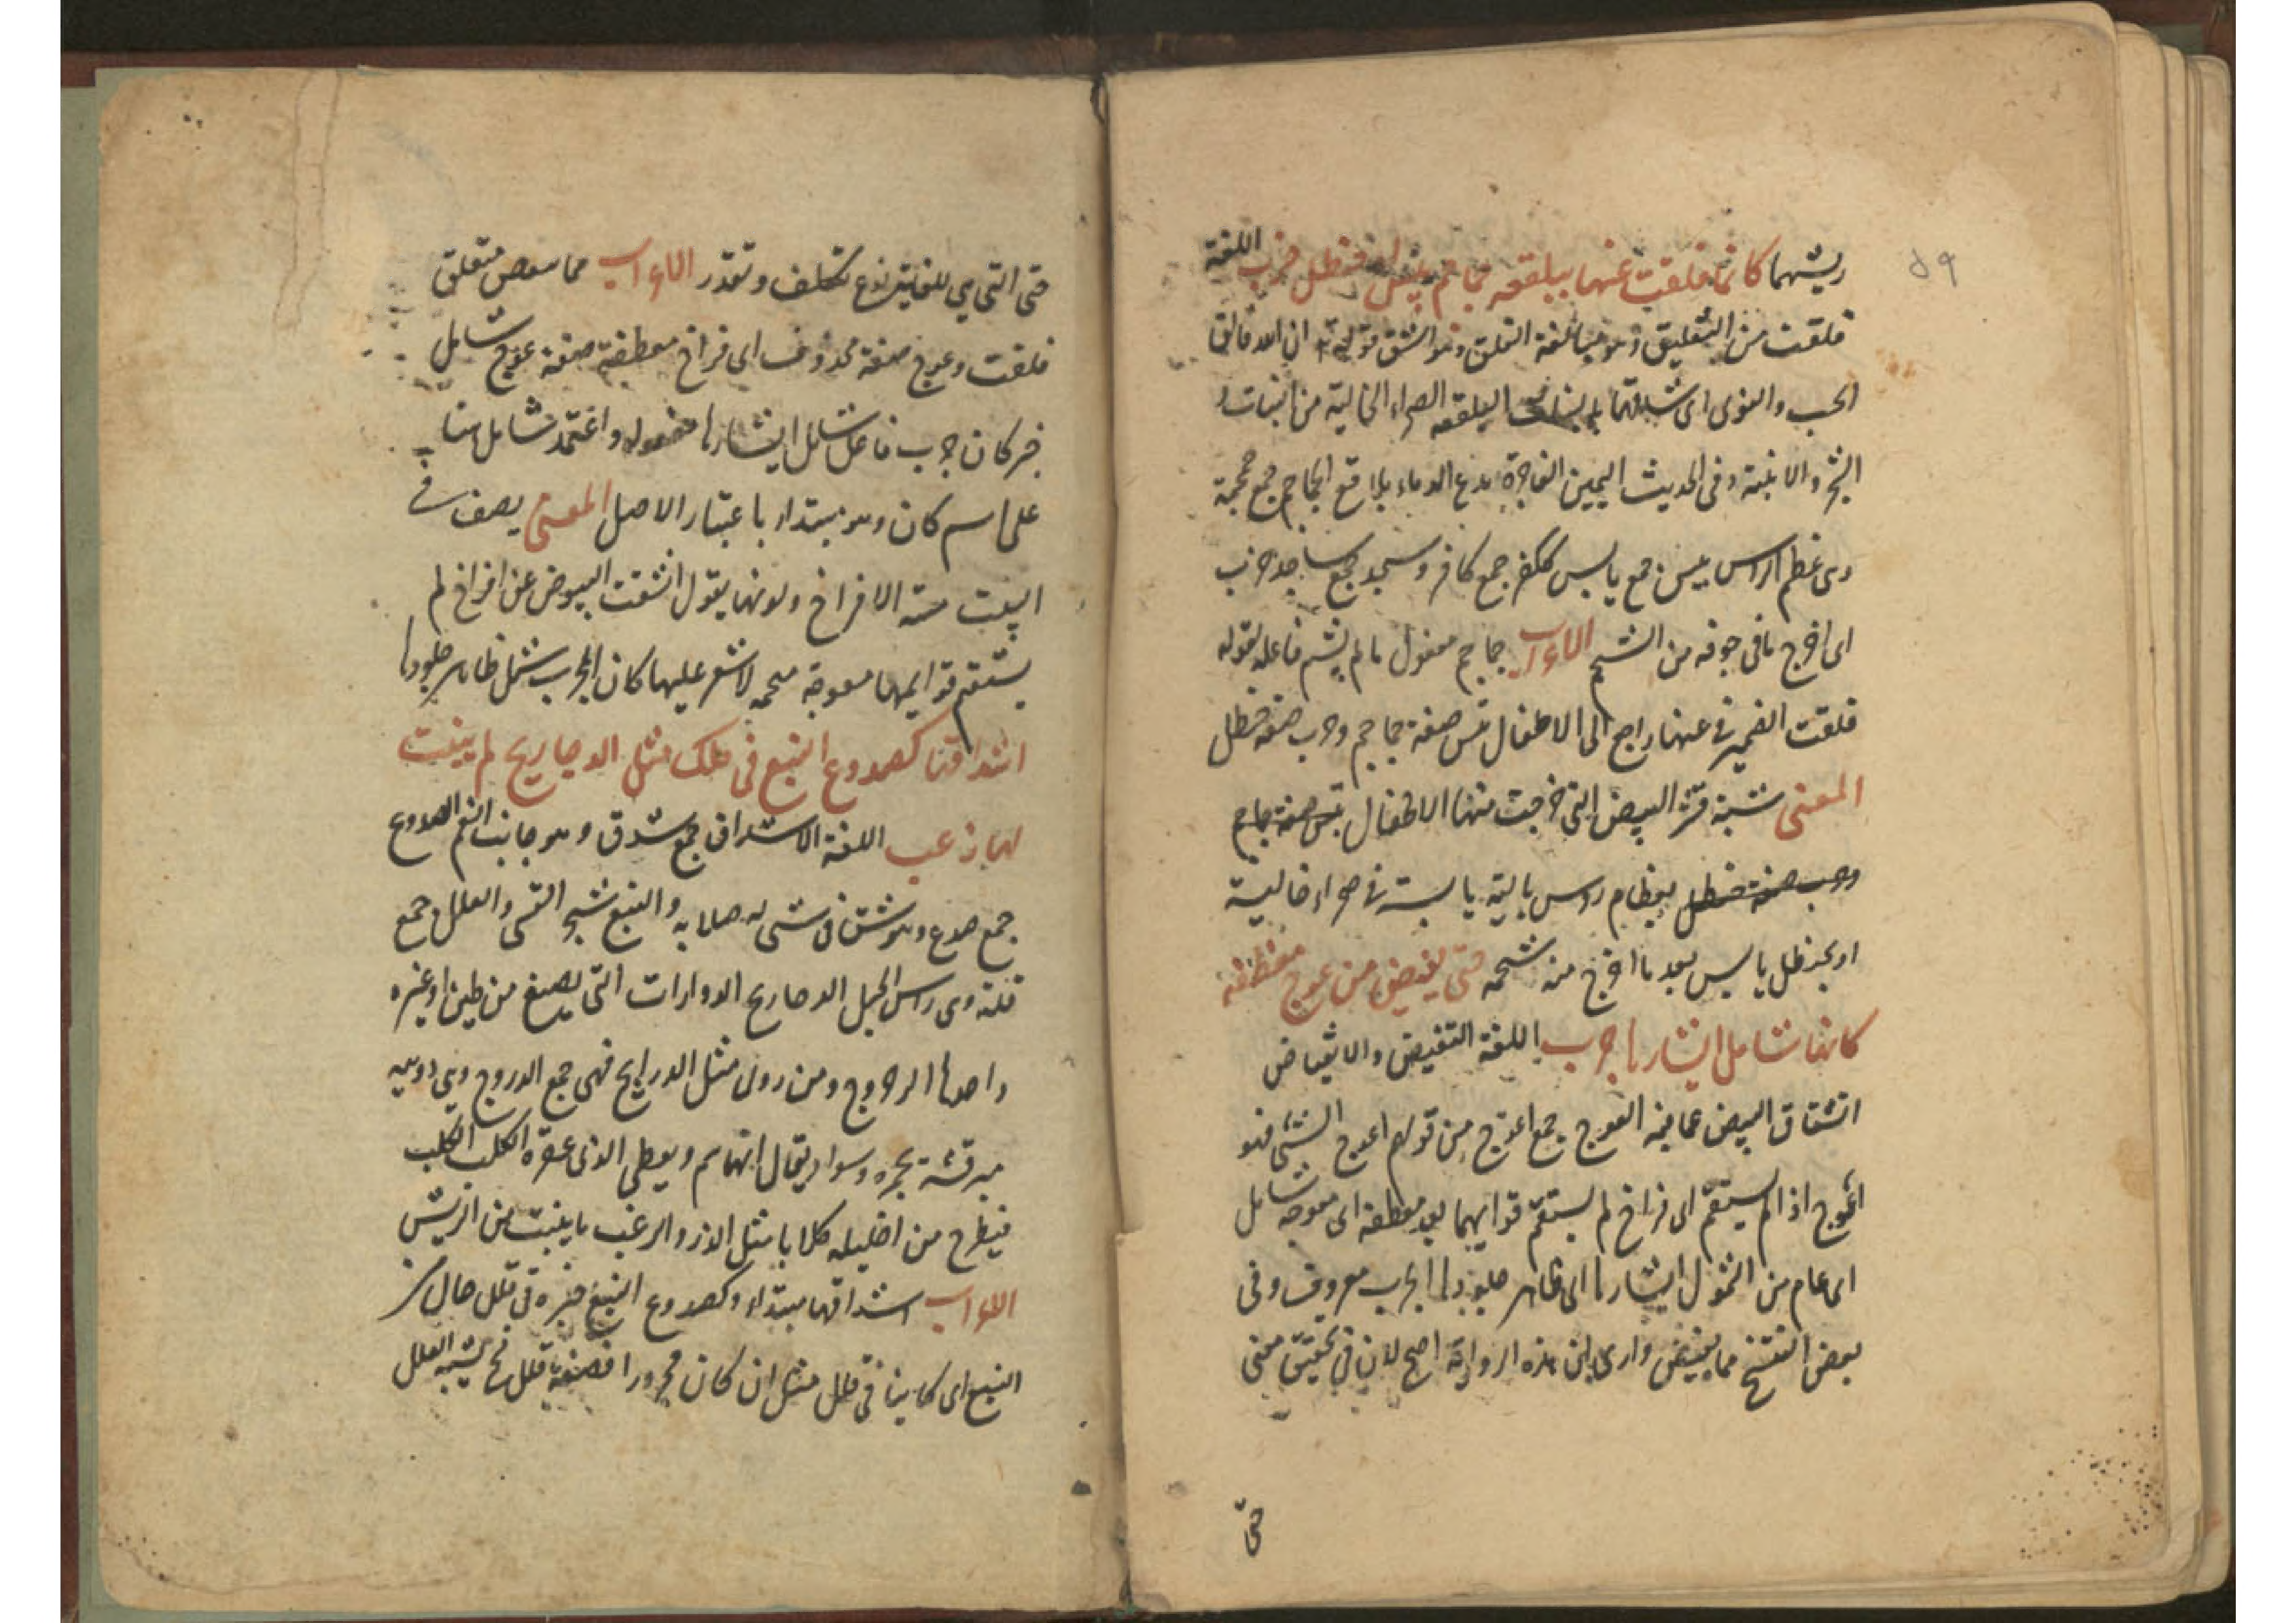 ريشهما كانما فلقت عنها ببلقعة جماجم يبس او حنظل خرب اللغة
فلقت من التفليق وهو مبالغة الفلق وهو الشق قوله ان الله فالق
الحب والنوى اى البلقعة الصحراء الخالية من النبات و
الشجر والابنية وفى الحديث اليمين الفاجرة تدع الديار بلاقع الجماجم جمع جمجمة
وهى عظم الراس يبس جمع يابس ككفر جمع كافر وسجد جمع ساجد خرب
اى اخرج ما فى جوفه من الشحم الاعراب جماجم مفعول ما لم يسم فاعله لقوله
فلقت الضمير فى عنها راجع الى الاطفال يبس صفة جماجم وخرب صفة حنظل
المعنى شبه قشر البيض التى خرجت منها الاطفال يبس صفة جماجم
وخرب صفة حنظل بعظام روس بالية يابسة فى صحراء خالية
او بحنظل يابس بعد ما اخرج منه شحمه حتى تقيض من عوج معطفة
كانها شامل ابشارها جرب اللغة التقيض والانقياض
انشقاق البيض عما فيه العوج جمع اعوج من قولهم اعوج الشئ فهو
اعوج اذا لم يستقم اى فراخ لم يستقم قوايمها بعد معطفة اى معوجة شامل
اى عام من الشمول ابشارها اى ظاهر جلودها الجرب معروف وفى
بعض النسخ مما تقيض وارى ان هذه الرواية اصح لان فى تحقيق معنى
حتى
حتى التى هى للغاية نوع تكلف وتعذر الاعراب مما متعلق
فلقت وعوج صفة محذوف اى فراخ معطفة صفة عوج شامل
خبر كان جرب فاعل شامل ابشارها مفعوله واعتمد شامل هنا
على اسم كان وهو مبتداء باعتبار الاصل المعنى يصف فى
البيت الافراخ ولونها يقول انشقت البيوض عن افراخ لم
يستقم قوايمها معوجة لا شعر عليها كان الجرب شمل ظاهر جلودها
اشداقها كصدوع النبع فى قلل مثل الدحاريج لم ينبت
لها زغب اللغة الاشداق جمع شدق وهو جانب الفم الصدوع
جمع صدع وهو شق فى شى له صلابة والنبع شجر القسى والقلل جمع
قلة وهى راس الجبل الدحاريج الدوارات التى يصنع من طين او غيره
واحدها الدحروج ومن روى مثل الدراريج فهى جمع الدروج وهى دويبة
مبرقشة بحمرة وسواد يقال انها سم ويعطى الذى عضه الكلب الكلب
فيطرح من احليله كلابا مثل الذر والزغب ما ينبت من الريش
الاعراب اشداقها مبتداء وكصدوع النبع خبره فى قلل حال من
النبع اى كاينا فى قلل مثل ان كان مجرورا فصفة قلل تشبه القلل